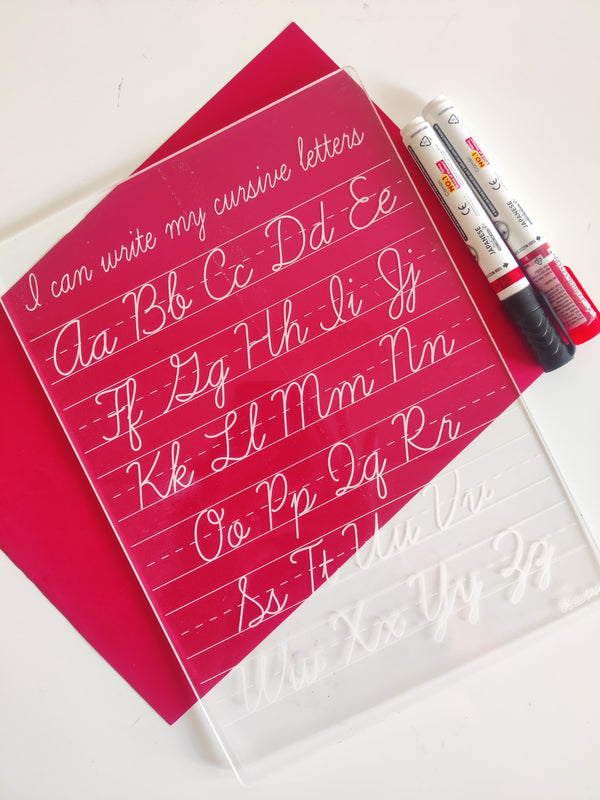 I can write my cursive letters
Aa Bb Cc Dd Ee
Ff Gg Hh Ii Jj
Kk Ll Mm Nn
Oo Pp Qq Rr
Ss Tt Uu Vv
Ww Xx Yy Zz
NO.1
JAPANESE
CE
NO.1
JAPANESE
CE